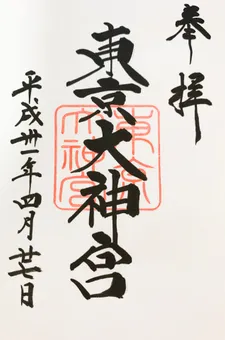 奉拝
東京大神宮
東京大神宮
平成卅一年四月廿七日